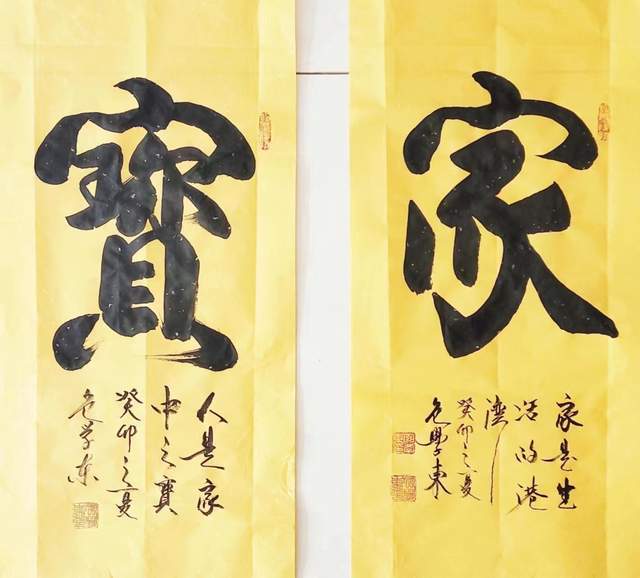 家
家是生
活的港
湾
癸卯之夏
包學東
寳
人是家
中之寳
癸卯之夏
包学东